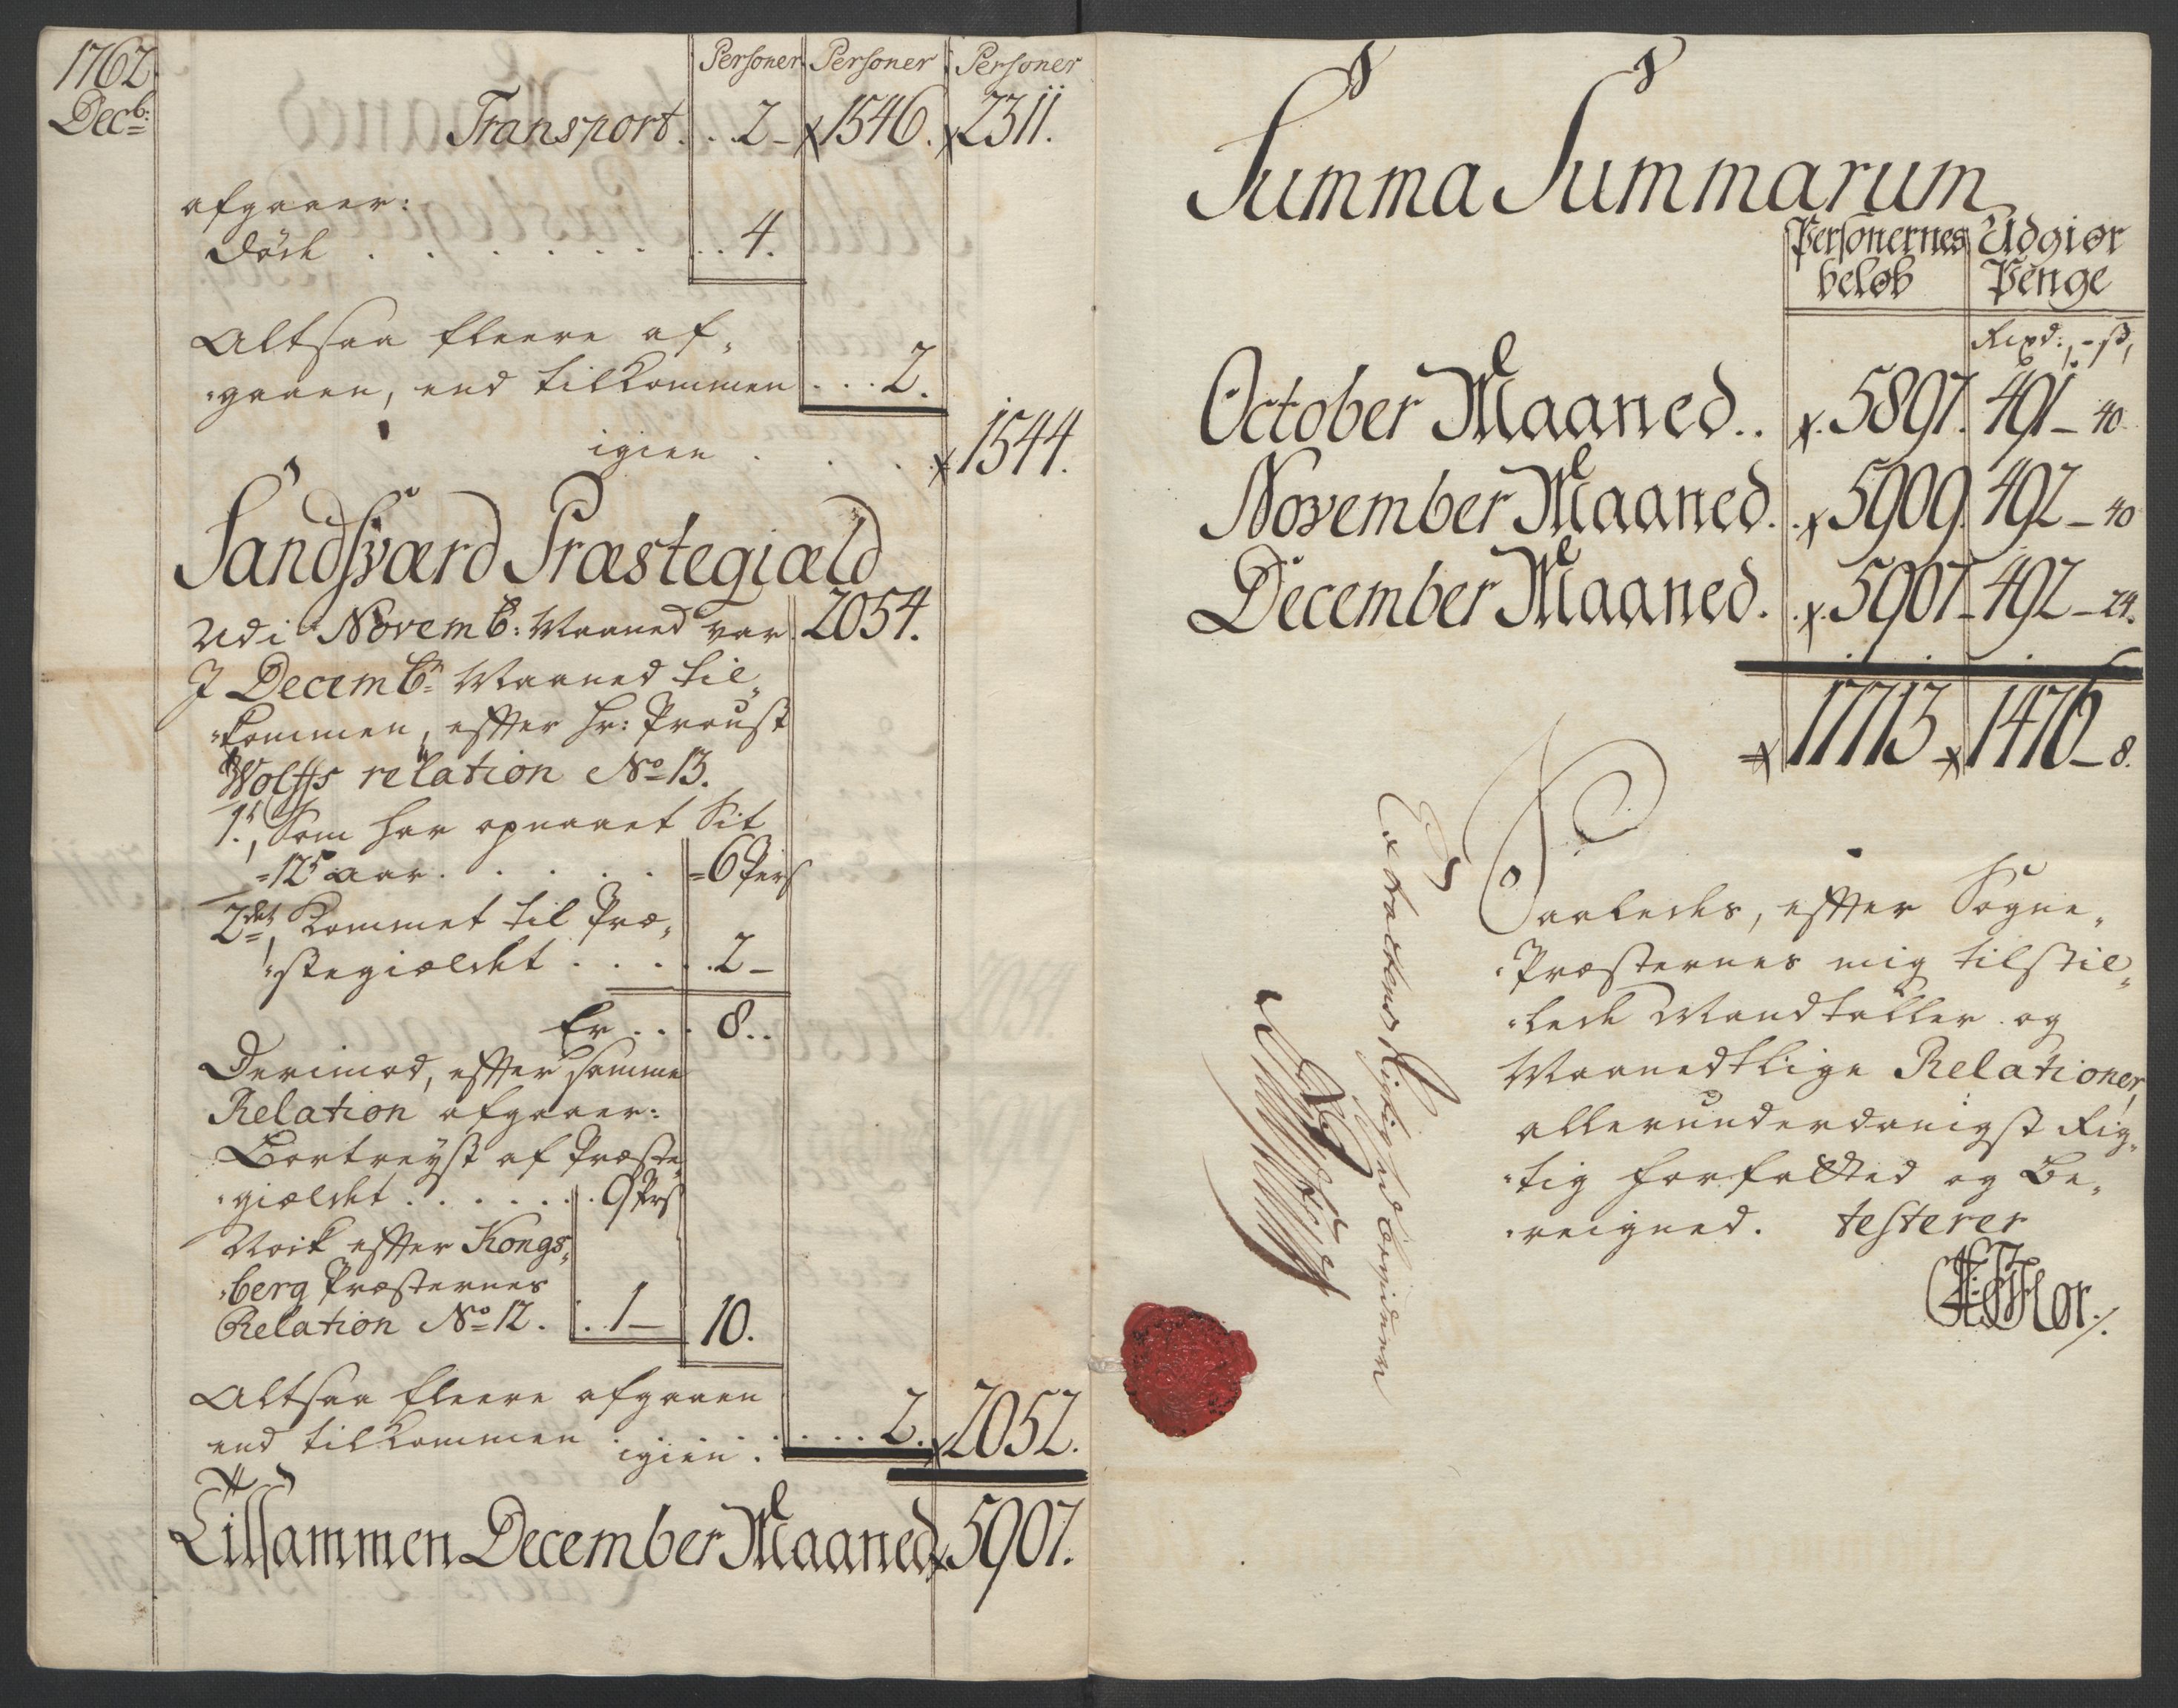 1762
Decb:
Personer Personer Personer
Transport. . . 2 - 1546. 2311.
afgaaer:
döde . . . . . . . . 4.
Altsaa fleere af-
gaaen, end tilkommen . . . 2.
igien . . . 1544.
Sandsværd Præstegiæld
Udi Novemb: Maaned var 2054.
I Decembr Maaned til-
kommen, efter Hr: Proust
Wolffs relation No 13.
1., Som har opnaaet Sit
12te aar. . . . . . = 6 Pers
2det, Kommet til Præ-
stegiældet . . . . . 2 -
Er . . . 8..
Derimod, efter samme
Relation afgaaer:
Bortreyst af Præste-
giældet . . . . . . . 9 Prs
Nock efter Kongs-
berg Præsternes
Relation No 12. . . 1 - 10.
Altsaa fleere afgaaen
end tilkommen . . . . . . . 2. 2052.
igien .
Tilsammen December Maaned 5907.
Summa Summarum
Personernes Udgiør
beløb Penge
Rixd:, - ß,
October Maaned. . 5897. 491 - 40
November Maaned. . 5909. 492 - 40
December Maaned. . 5907 - 492 - 24.
17713 1476 - 8.
Saaledes, efter Sogne-
Præsternes mig tilstil-
lede Mandtaller og
Maanedtlige Relationer,
allerunderdanigst Rig-
tig forfatted og Be-
reigned. testerer
Flor./.
Extractens Rigtighed